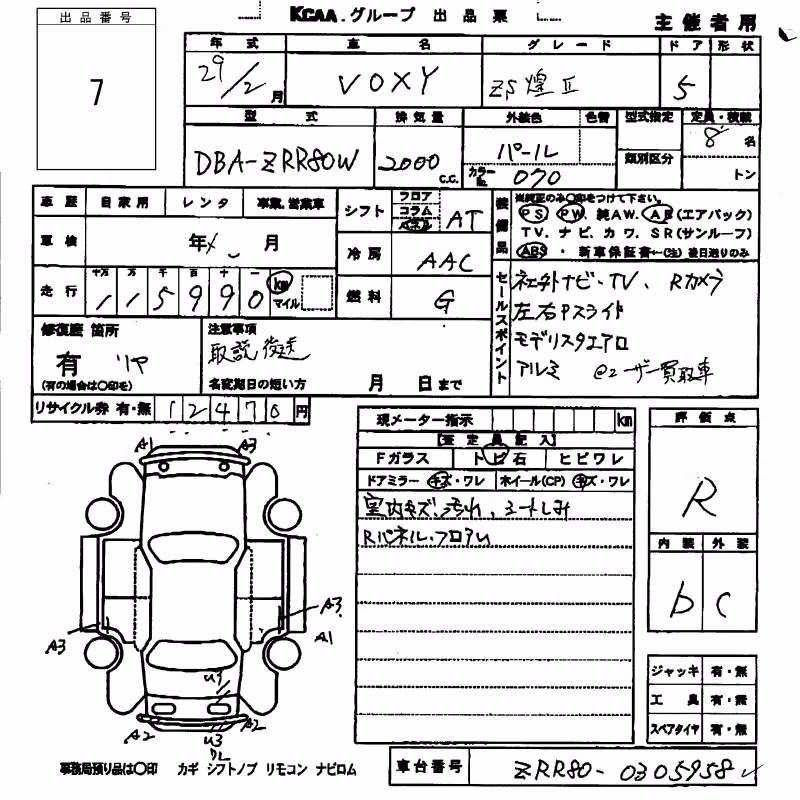 KCAA.グループ 出品票
主催者用
出品番号
7
年式 車名 グレード ドア 形状
29/2月 VOXY ZS 煌 II 5
型式 排気量 外装色 色替 型式指定 定員・積載
DBA-ZRR80W 2000 c.c. パール 類別区分 8 名
カラーNo. 070 トン
車歴 自家用 レンタ 事業、営業車
シフト フロア コラム パネル AT
装備品
※純正のみ〇印をつけて下さい。
PS PW 純AW. AB (エアバック)
TV. ナビ. カワ. SR(サンルーフ)
ABS ・ 新車保証書←(注)後日送りのみ
車検 年 月
冷房 AAC
走行 十万 万 千 百 十 一
1 1 5 9 9 0 km マイル
燃料 G
セールスポイント
社外ナビ・TV、Rカメラ
左右Pスライド
モデリスタエアロ
アルミ @ユーザー買取車
修復歴 箇所
有 リヤ
(有の場合は〇印を)
注意事項
取説 後送
名変期日の短い方 月 日まで
リサイクル券 有・無 1 2 4 7 0 円
現メーター指示 km
【査定員記入】
Fガラス トビ石 ヒビワレ
ドアミラー キズ・ワレ ホイール(CP) キズ・ワレ
室内キズ、汚れ、シートしみ
Rパネル・フロアU
評価点
R
内装 外装
b C
ジャッキ 有・無
工具 有・無
スペアタイヤ 有・無
A1 A3
A3
A3 A1
U1
A2 A2
U3
事務局預り品は〇印 カギ シフトノブ リモコン ナビロム
車台番号 ZRR80-0305958